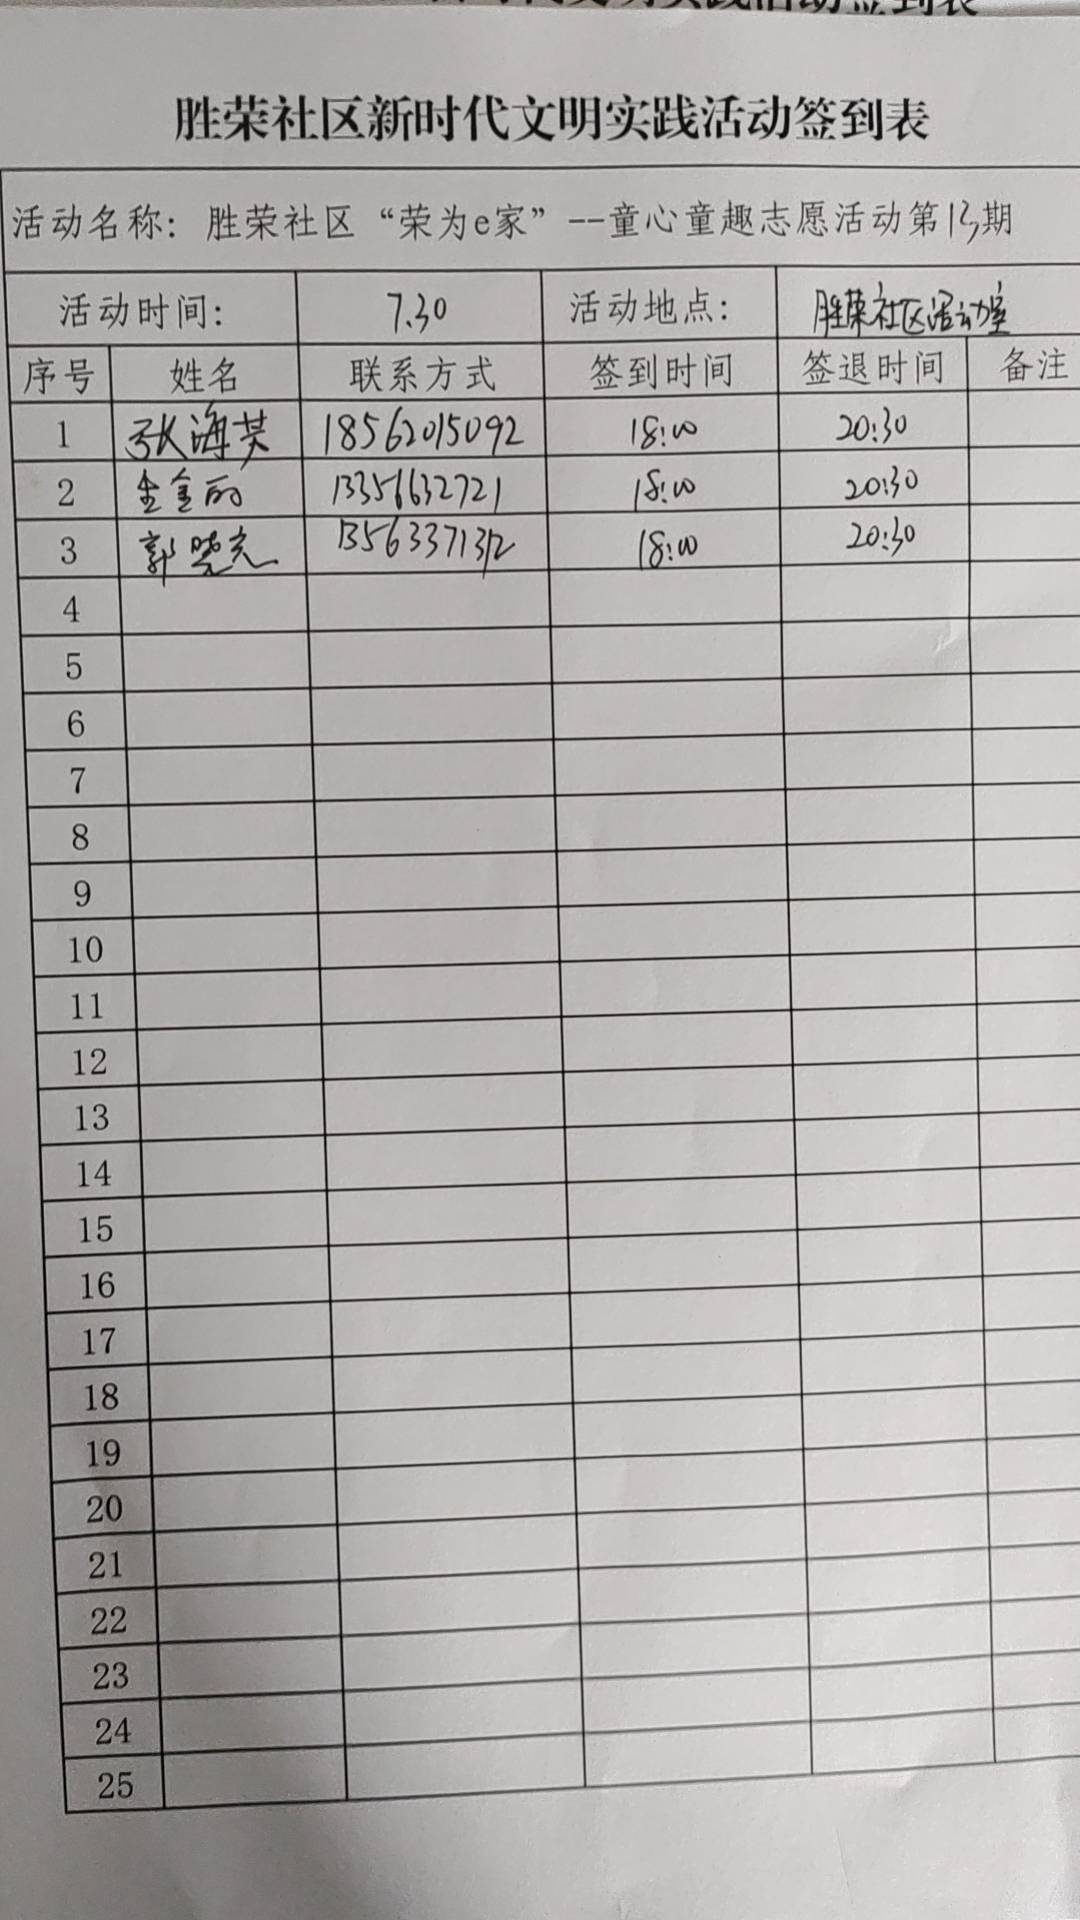 胜荣社区新时代文明实践活动签到表
活动名称：胜荣社区“荣为e家”--童心童趣志愿活动第13期
活动时间： 7.30 活动地点： 胜荣社区活动室
序号 姓名 联系方式 签到时间 签退时间 备注
1 张海英 18562015092 18:00 20:30
2 13356632721 18:00 20:30
3 郭晓光 13563371312 18:00 20:30
4
5
6
7
8
9
10
11
12
13
14
15
16
17
18
19
20
21
22
23
24
25